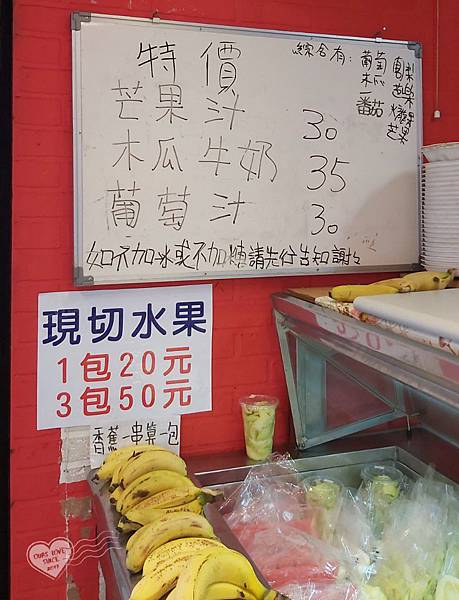 特價
芒果汁 30
木瓜牛奶 35
葡萄汁 30
綜合有:葡萄
木瓜
番茄
鳳梨
芭樂
蘋果
芒果
如不加冰或不加糖請先行告知謝々
現切水果
1包20元
3包50元
香蕉一串算一包
OURS LOVE
SINCE